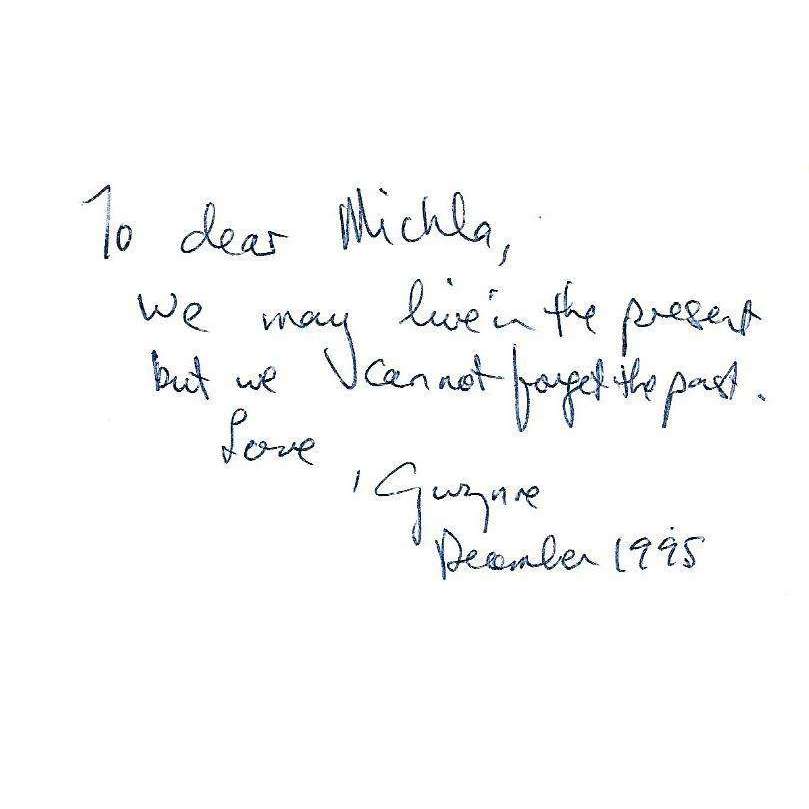 To dear Michla,
We may live in the present
but we cannot forget the past.
Love
, Gwynne
December 1995